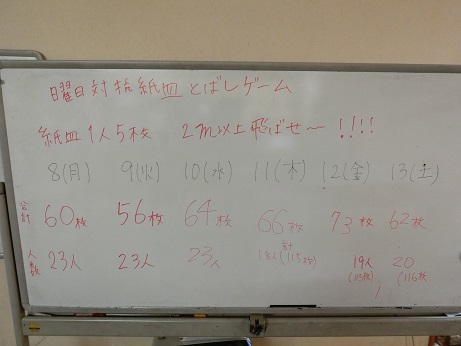 曜日対抗紙皿とばしゲーム
紙皿1人5枚 2m以上飛ばせ〜!!!!
8(月) 9(火) 10(水) 11(木) 12(金) 13(土)
合計 60枚 56枚 64枚 66枚 73枚 62枚
人数 23人 23人 23人 計 18人(115枚) 19人 20
(116枚